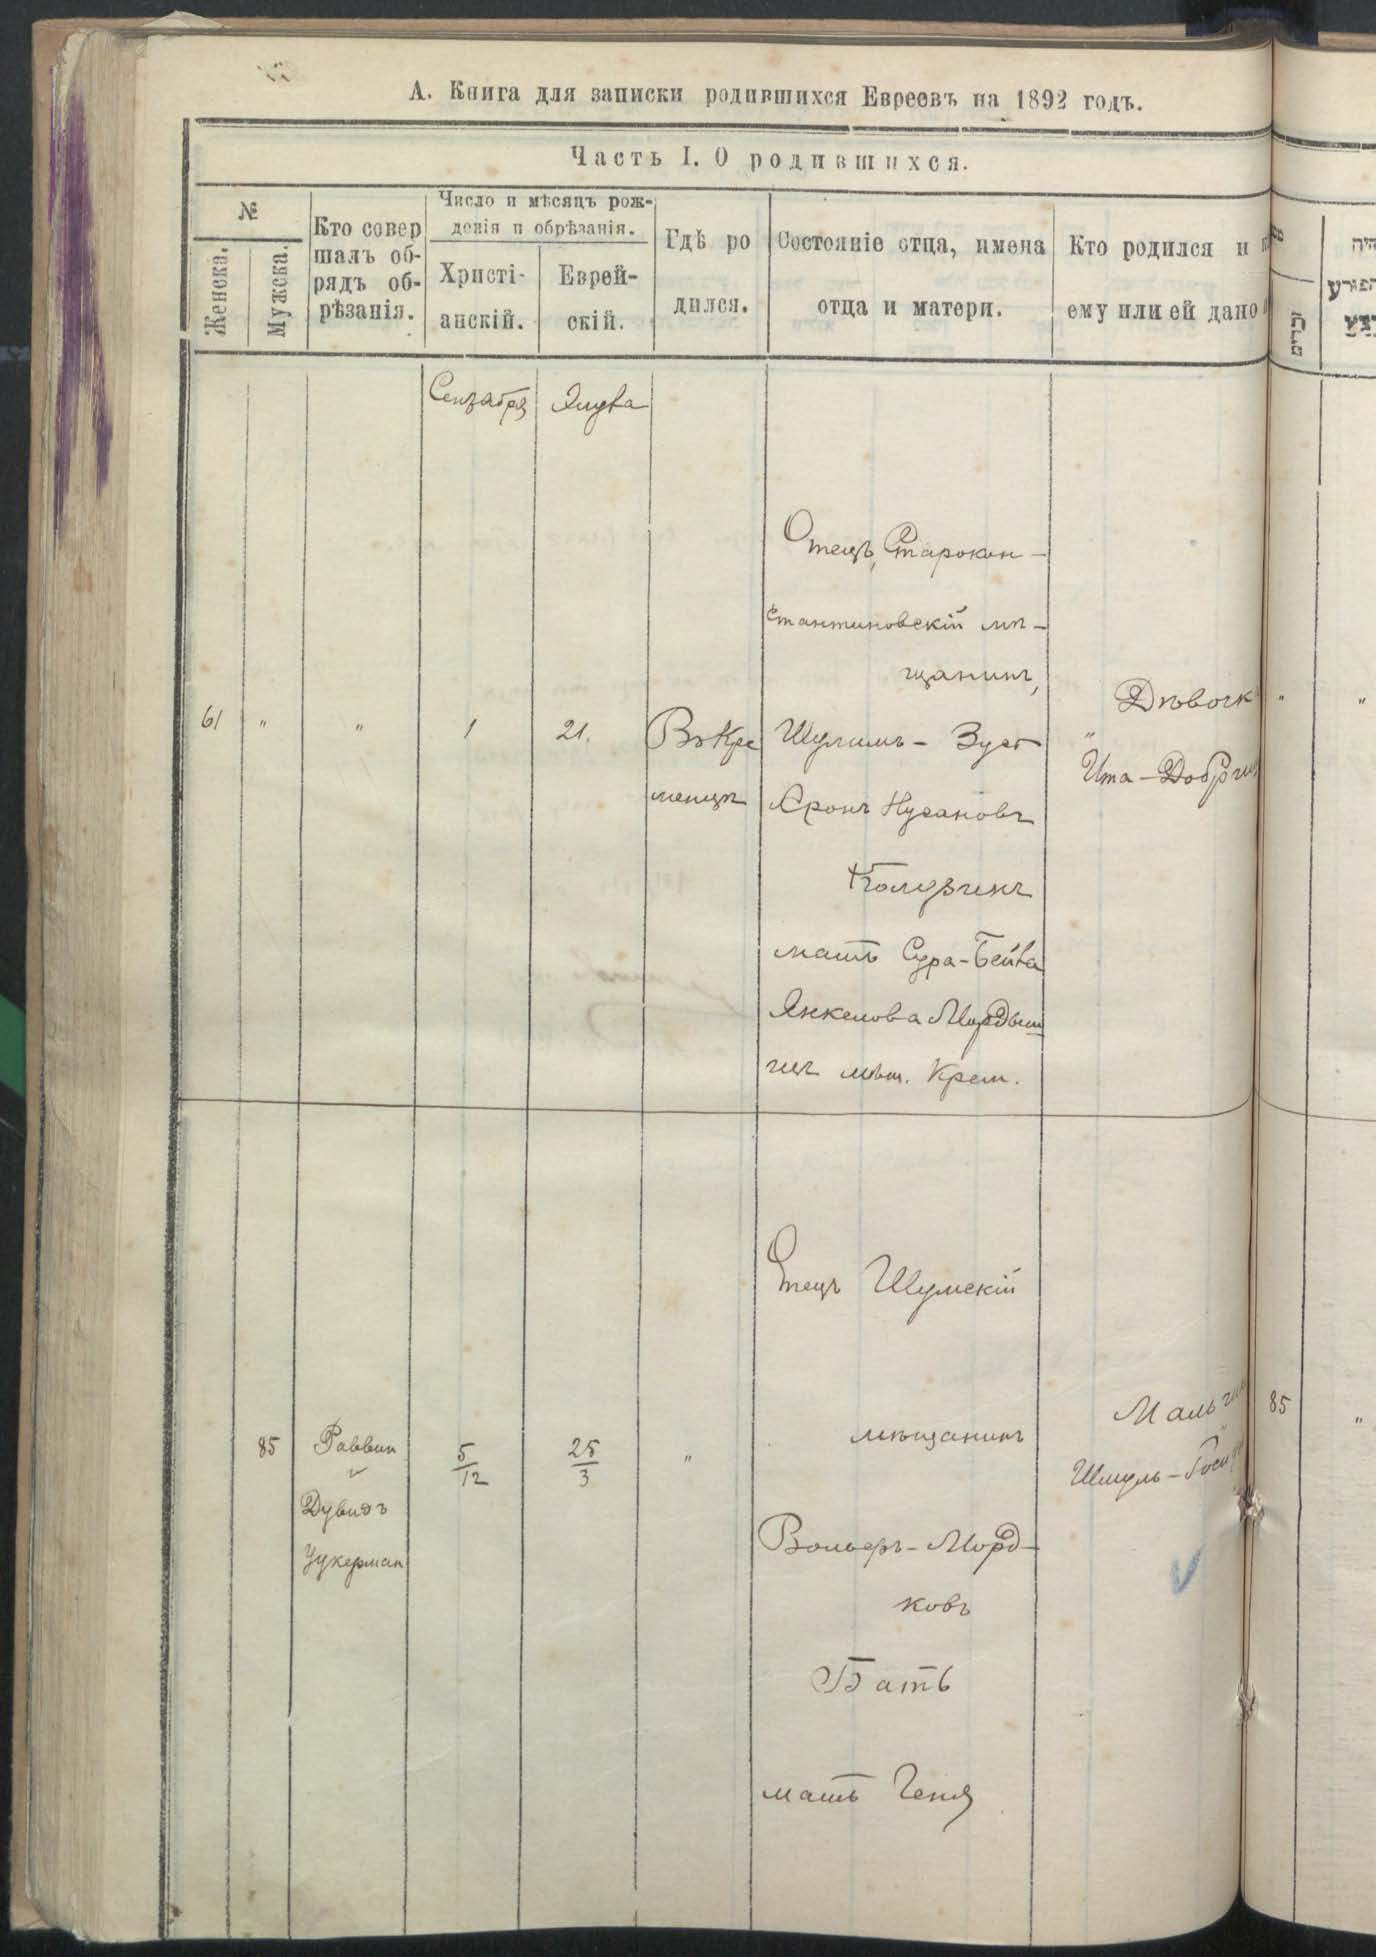 А. Книга для записки родившихся Евреевъ на 1892 годъ.
Часть I. О родившихся.
№
Женска.
Мужска.
Кто совер
шалъ об-
рядъ об-
рѣзанія.
Число и мѣсяцъ рож-
денія и обрѣзанія.
Христі-
анскій.
Еврей-
скій.
Гдѣ ро
дился.
Состояніе отца, имена
отца и матери.
Кто родился и
ему или ей дано
Сентября
Элула
61
"
"
1
21.
Въ Кре
менцѣ
Отецъ, Старокон-
стантиновскій мѣ-
щанинъ,
Шулимъ-Зуся
Аронъ Нусановъ
мать Сура-Бейла
Янкелова
мѣщ. Крем.
Дѣвочк
"
Ита-Добр
"
"
85
Раввин
Дувидъ
Цукерман
5/12
25/3
"
Отецъ Шумскій
мѣщанинъ
Вольфъ-Морд-
ковъ
Батъ
мать Геня
Маль
Шмуль-
85
"